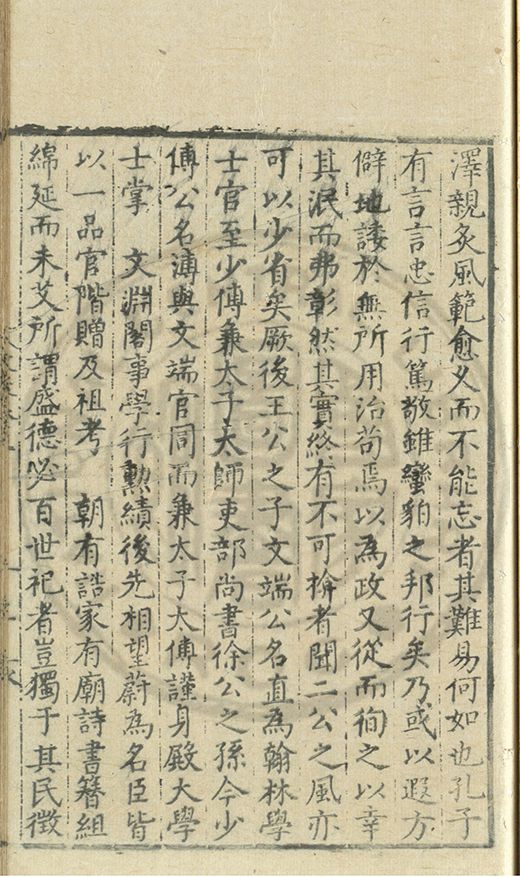 澤親炙風範愈久而不能忘者其難易何如也孔子
有言言忠信行篤敬雖蠻貊之邦行矣乃或以遐方
僻地諉於無所用治苟焉以為政又從而徇之以幸
其泯而弗彰然其實終有不可揜者聞二公之風亦
可以少省矣厥後王公之子文端公名直為翰林學
士官至少傅兼太子太師吏部尚書徐公之孫今少
傅公名溥與文端官同而兼太子太傅謹身殿大學
士掌 文淵閣事學行勳績後先相望蔚為名臣皆
以一品官階贈及祖考 朝有誥家有廟詩書簪組
綿延而未艾所謂盛德必百世祀者豈獨于其民徵